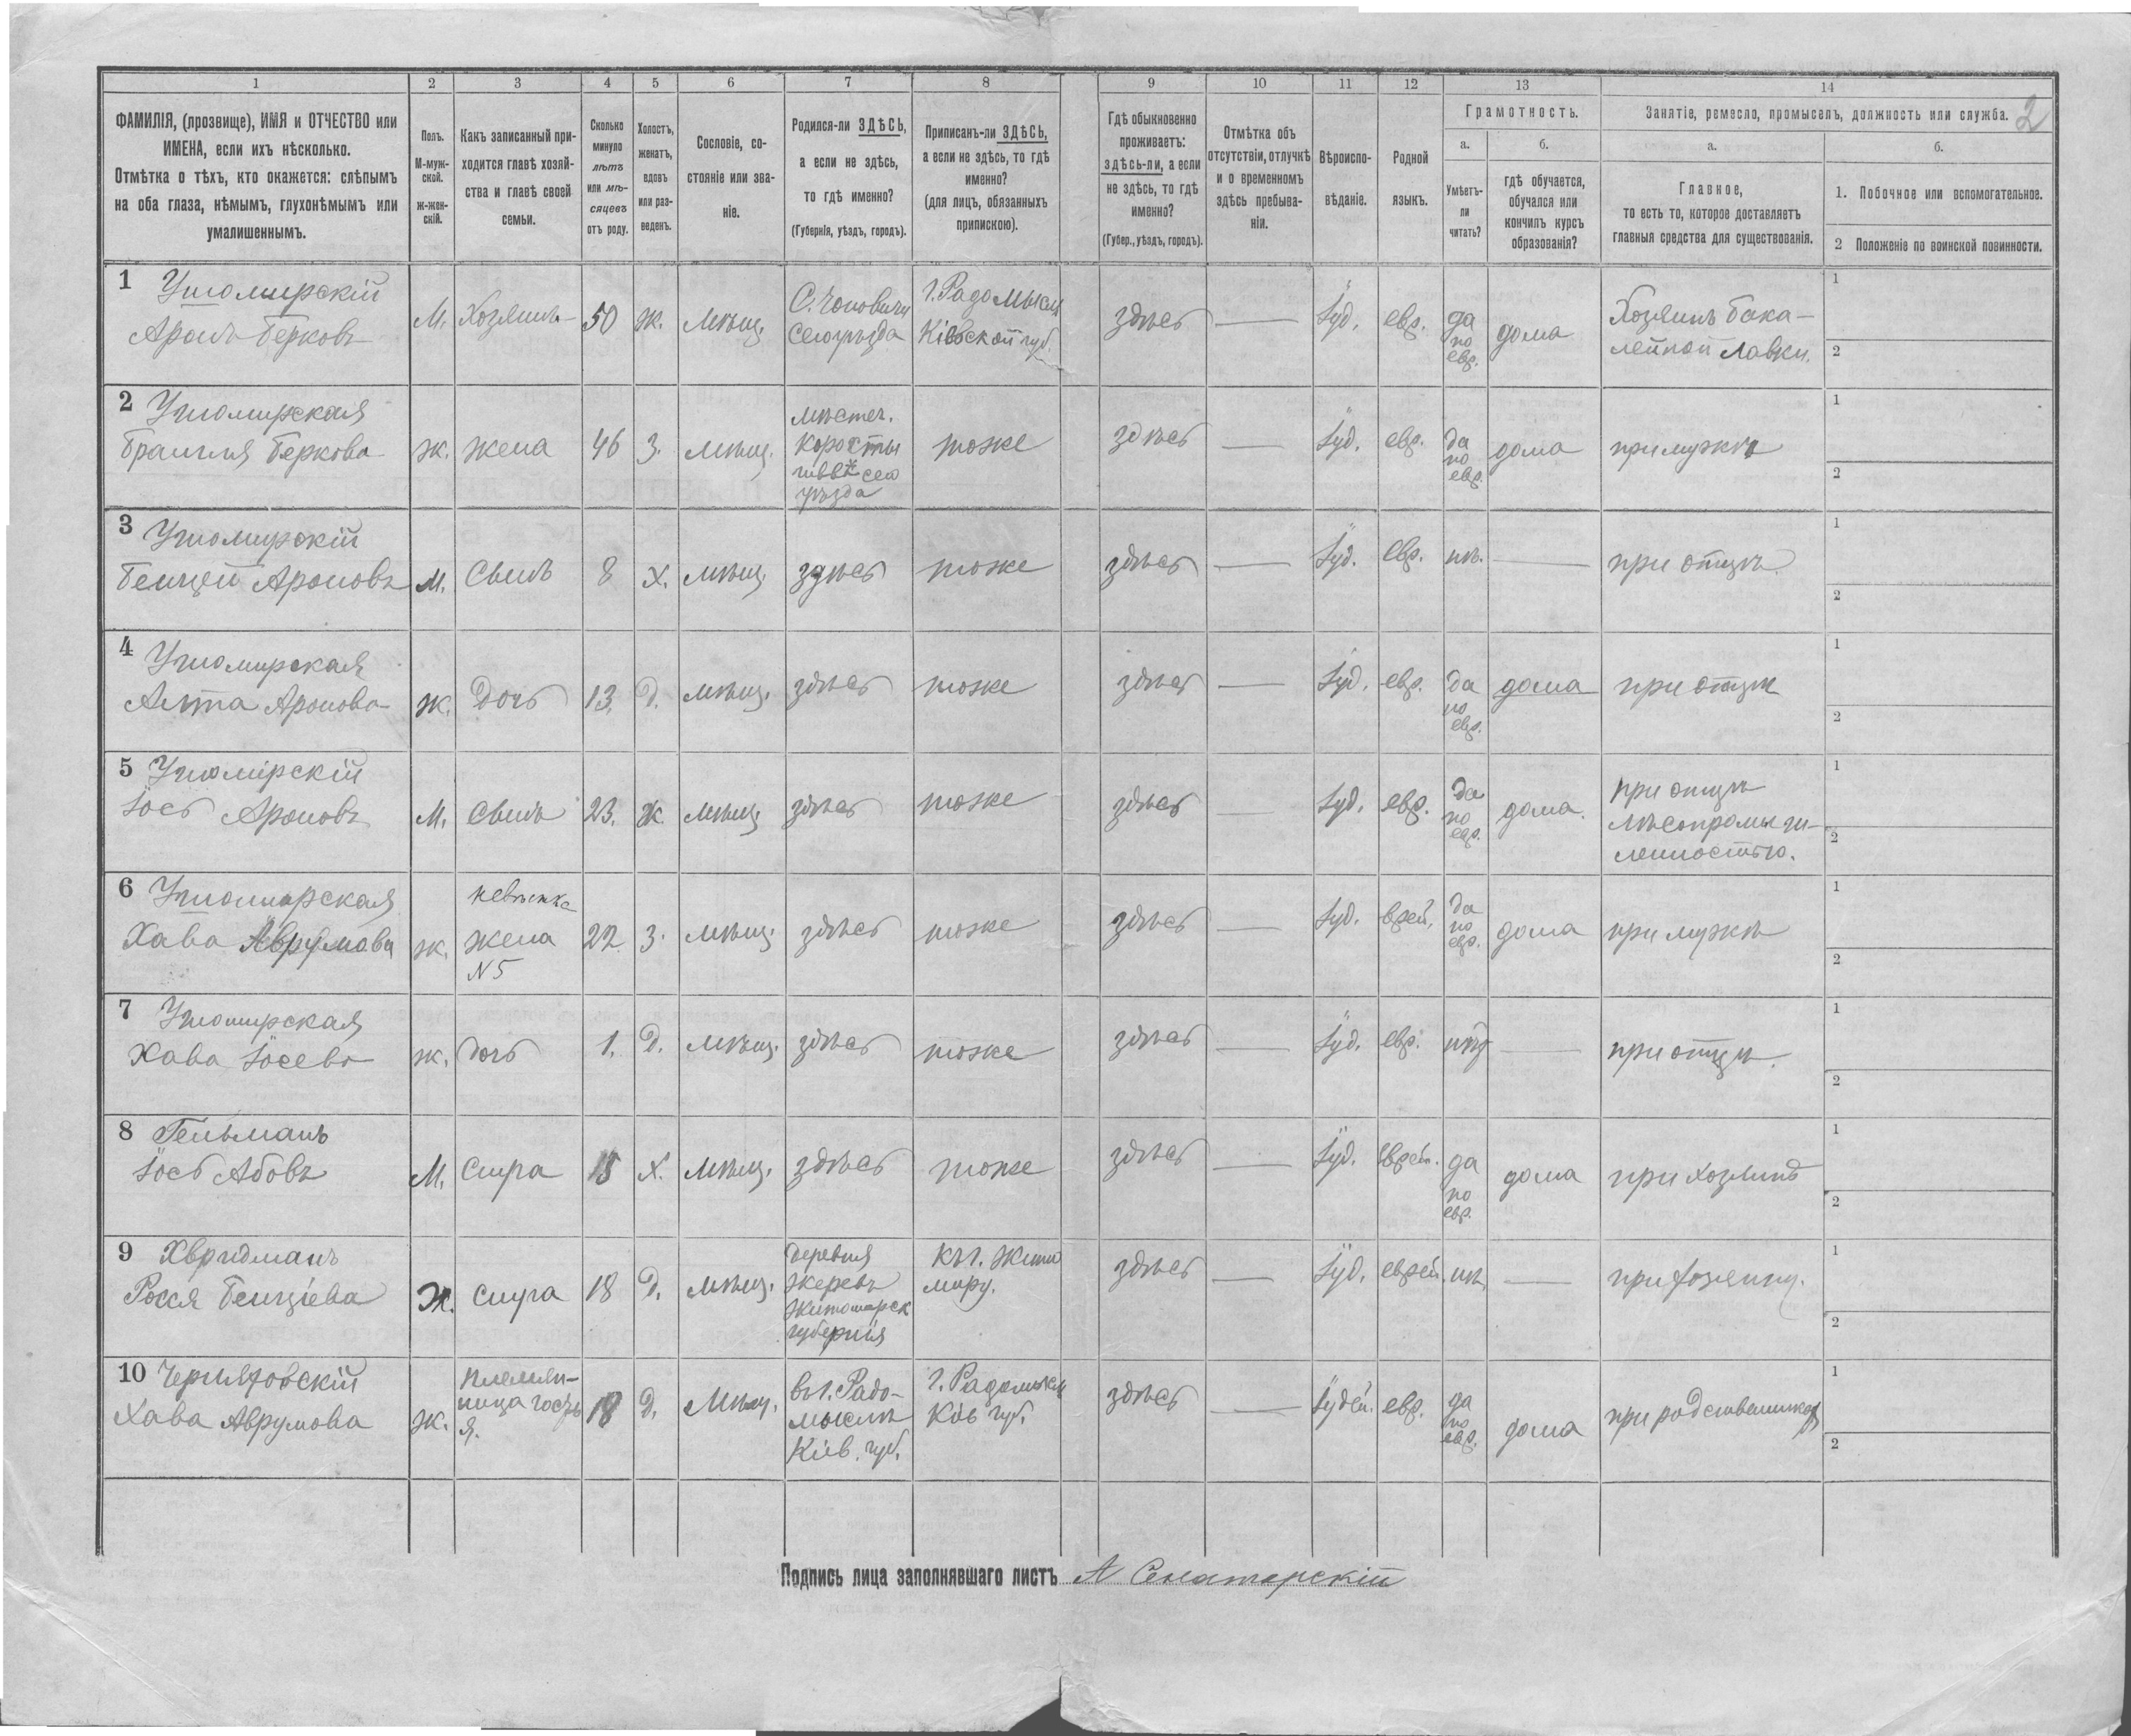 1 2 3 4 5 6 7 8 9 10 11 12 13 14
ФАМИЛІЯ, (прозвище), ИМЯ и ОТЧЕСТВО или
ИМЕНА, если ихъ нѣсколько.
Отмѣтка о тѣхъ, кто окажется: слѣпымъ
на оба глаза, нѣмымъ, глухонѣмымъ или
умалишеннымъ.
Полъ.
М-муж-
ской.
ж-жен-
скій.
Какъ записанный при-
ходится главѣ хозяй-
ства и главѣ своей
семьи.
Сколько
минуло
лѣтъ
или мѣ-
сяцевъ
отъ роду.
Холостъ,
женатъ,
вдовъ
или раз-
веденъ.
Сословіе, со-
стояніе или зва-
ніе.
Родился-ли ЗДѢСЬ,
а если не здѣсь,
то гдѣ именно?
(Губернія, уѣздъ, городъ).
Приписанъ-ли ЗДѢСЬ,
а если не здѣсь, то гдѣ
именно?
(для лицъ, обязанныхъ
припискою).
Гдѣ обыкновенно
проживаетъ:
здѣсь-ли, а если
не здѣсь, то гдѣ
именно?
(Губер., уѣздъ, городъ).
Отмѣтка объ
отсутствіи, отлучкѣ
и о временномъ
здѣсь пребыва-
ніи.
Вѣроиспо-
вѣданіе.
Родной
языкъ.
Грамотность.
а.
Умѣетъ-
ли
читать?
б.
гдѣ обучается,
обучался или
кончилъ курсъ
образованія?
Занятіе, ремесло, промыселъ, должность или служба. 2
а.
Главное,
то есть то, которое доставляетъ
главныя средства для существованія.
б.
1. Побочное или вспомогательное.
2 Положеніе по воинской повинности.
1 Ушомирскій
Аронъ Берковъ
М.
Хозяинъ
50
ж.
мѣщ.
С. Чоповичи
сего уѣзда
г. Радомысль
Кіевской губ.
здѣсь
Іуд.
евр.
да
по
евр.
дома
Хозяинъ бака-
лейной лавки.
1
2
2 Ушомирская
Беркова
ж.
жена
46
З.
мѣщ.
мѣстеч.
сего
уѣзда
тоже
здѣсь
Іуд.
евр.
да
по
евр.
дома
при мужѣ
1
2
3 Ушомирскій
Бенцей Ароновъ
м.
Сынъ
8
х.
мѣщ.
здѣсь
тоже
здѣсь
Іуд.
евр.
нѣ.
при отцѣ.
1
2
4 Ушомирская
Аронова
ж.
Дочь
13.
Д.
мѣщ.
здѣсь
тоже
здѣсь
Іуд.
евр.
да
по
евр.
дома
при отцѣ
1
2
5 Ушомірскій
Іось Ароновъ
М.
Сынъ
23.
Ж.
мѣщ.
здѣсь
тоже
здѣсь
Іуд.
евр.
да
по
евр.
дома.
при отцѣ
лѣсопромыш-
ленностью.
1
2
6 Ушомирская
Хава Аврумова
ж.
невѣстка
жена
N 5
22
З.
мѣщ.
здѣсь
тоже
здѣсь
Іуд.
да
по
евр.
дома
при мужѣ
1
2
7 Ушомирская
Хава Іосева
ж.
дочь
1.
Д.
мѣщ.
здѣсь
тоже
здѣсь
Іуд.
евр.
нѣт
при отцѣ.
1
2
8 Гельманъ
Іось Абовъ
М.
Слуга
Х.
мѣщ.
здѣсь
тоже
здѣсь
Іуд.
еврей.
да
по
евр.
дома
при хозяинѣ
1
2
9
Бенціева
Ж.
слуга
18
Д.
мѣщ.
деревня
Жеревъ
губернія
къ г. Жито
миру.
здѣсь
Іуд.
еврей.
нѣ.
при хозяину.
1
2
10
Хава Аврумова
ж.
племян-
ница
Д.
Мѣщ.
въ г. Радо-
мыслѣ
Кіев. губ.
г. Радомысль
Кіев губ.
здѣсь
Іудей.
евр.
да
по
евр.
дома
при родственниках
1
2
Подпись лица заполнявшаго листъ А Сенаторскій